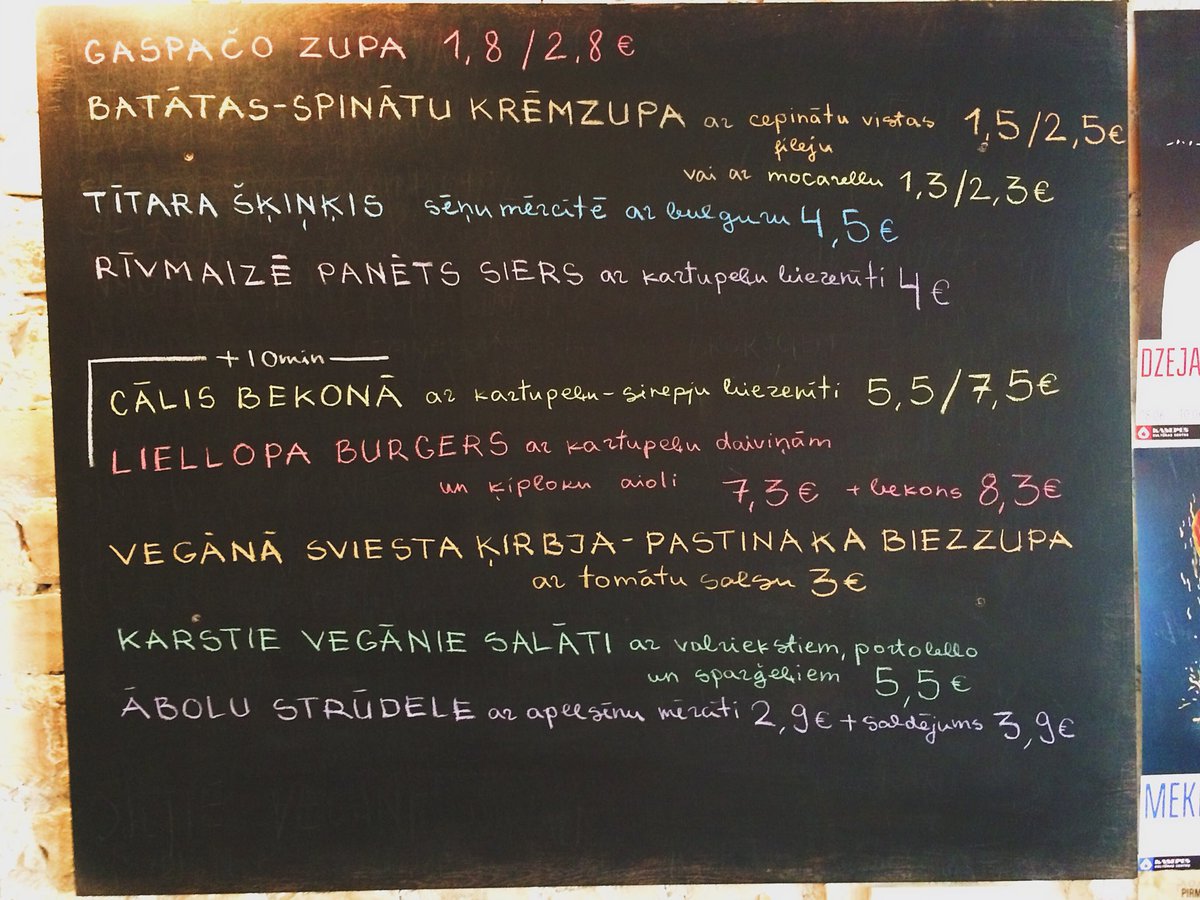 GASPAČO ZUPA 1,8/2,8€
BATĀTAS-SPINĀTU KRĒMZUPA ar cepinātu vistas fileju 1,5/2,5€
vai ar mocarellu 1,3/2,3€
TĪTARA ŠĶIŅĶIS sēņu mērcītē ar bulguru 4,5€
RĪVMAIZĒ PANĒTS SIERS ar kartupeļu biezenīti 4€
+10min
CĀLIS BEKONĀ ar kartupeļu-sinepju biezenīti 5,5/7,5€
LIELLOPA BURGERS ar kartupeļu daiviņām
un ķiploku aioli 7,3€ +bekons 8,3€
VEGĀNĀ SVIESTA ĶIRBJA-PASTINAKA BIEZZUPA
ar tomātu salsu 3€
KARSTIE VEGĀNIE SALĀTI ar valriekstiem, portobello
un sparģeļiem 5,5€
ĀBOLU STRŪDELE ar apelsīnu mērcīti 2,9€ + saldējums 3,9€
DZEJA
KAMPUS
MEK
KAMPUS
PIRM